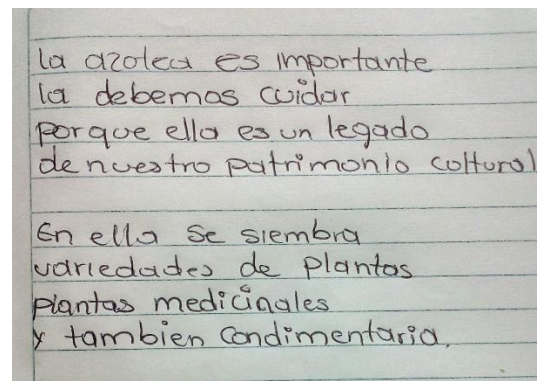 la azotea es importante
la debemos cuidar
porque ella es un legado
de nuestro patrimonio coltural
En ella se siembra
variedades de plantas
plantas medicinales
y tambien condimentaria.